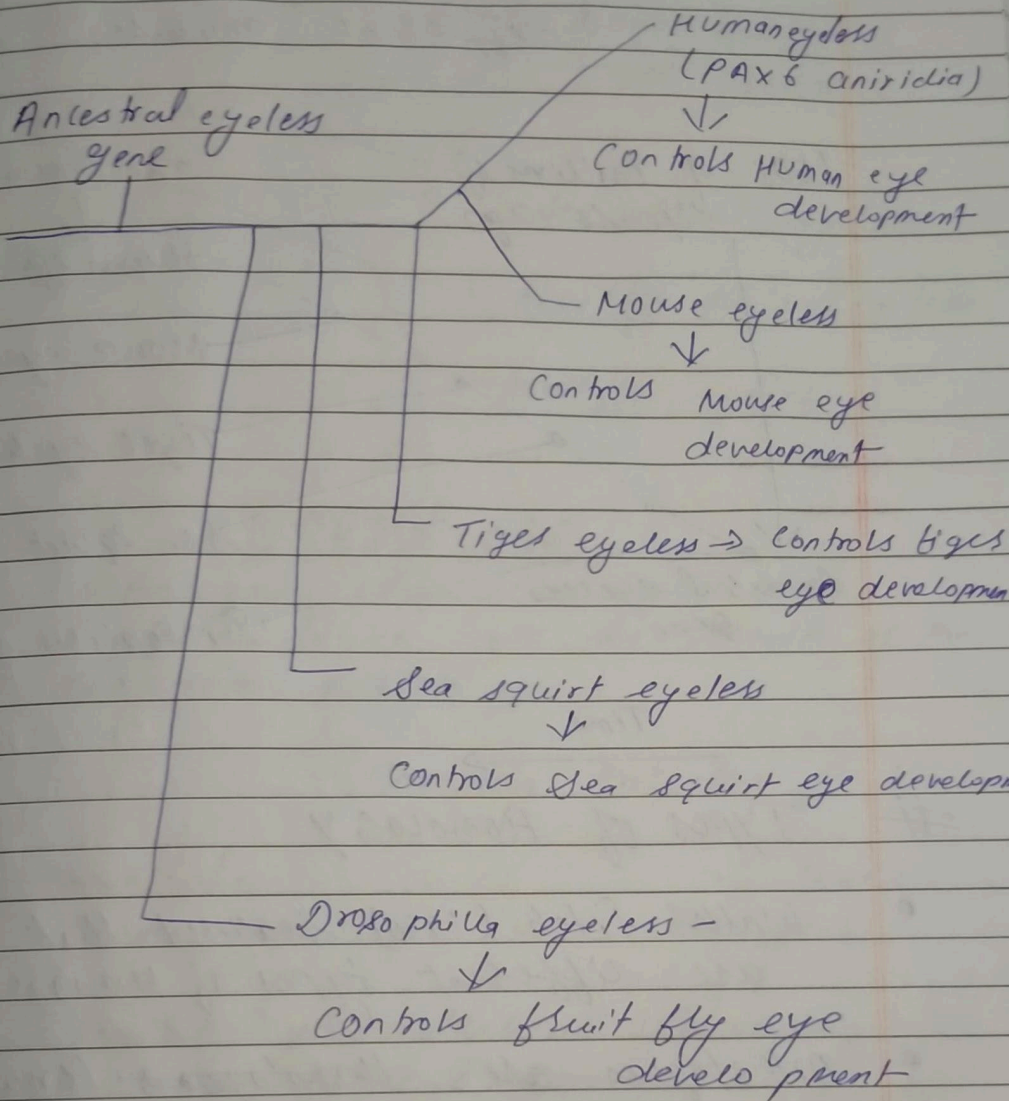 Ancestral eyeless
gene
Human eyeless
(PAX6 aniridia)
↓
Controls Human eye
development
Mouse eyeless
↓
Controls Mouse eye
development
Tiger eyeless → Controls tiger
eye developmen
Sea squirt eyeless
↓
Controls Sea squirt eye develop
Drosophilla eyeless -
↓
Controls fruit fly eye
development